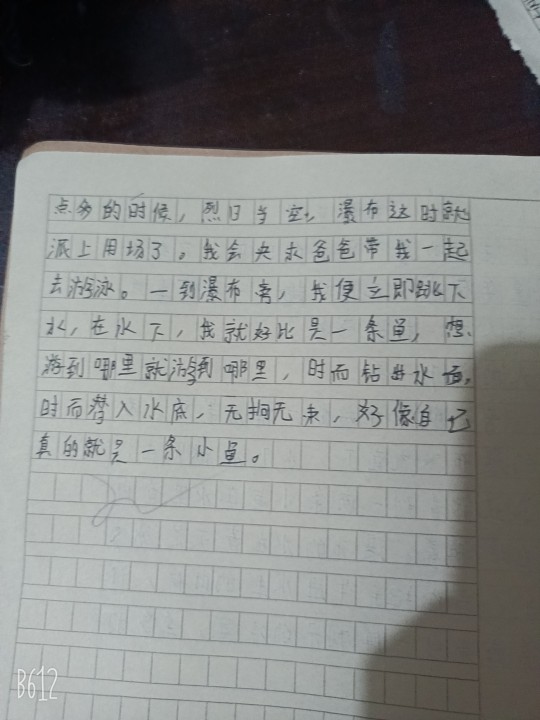 点多的时候，烈日当空，瀑布这时就
派上用场了。我会央求爸爸带我一起
去游泳。一到瀑布旁，我便立即跳下
水，在水下，我就好比是一条鱼，想
游到哪里就游到哪里，时而钻出水面，
时而潜入水底，无拘无束，好像自己
真的就是一条小鱼。
B612